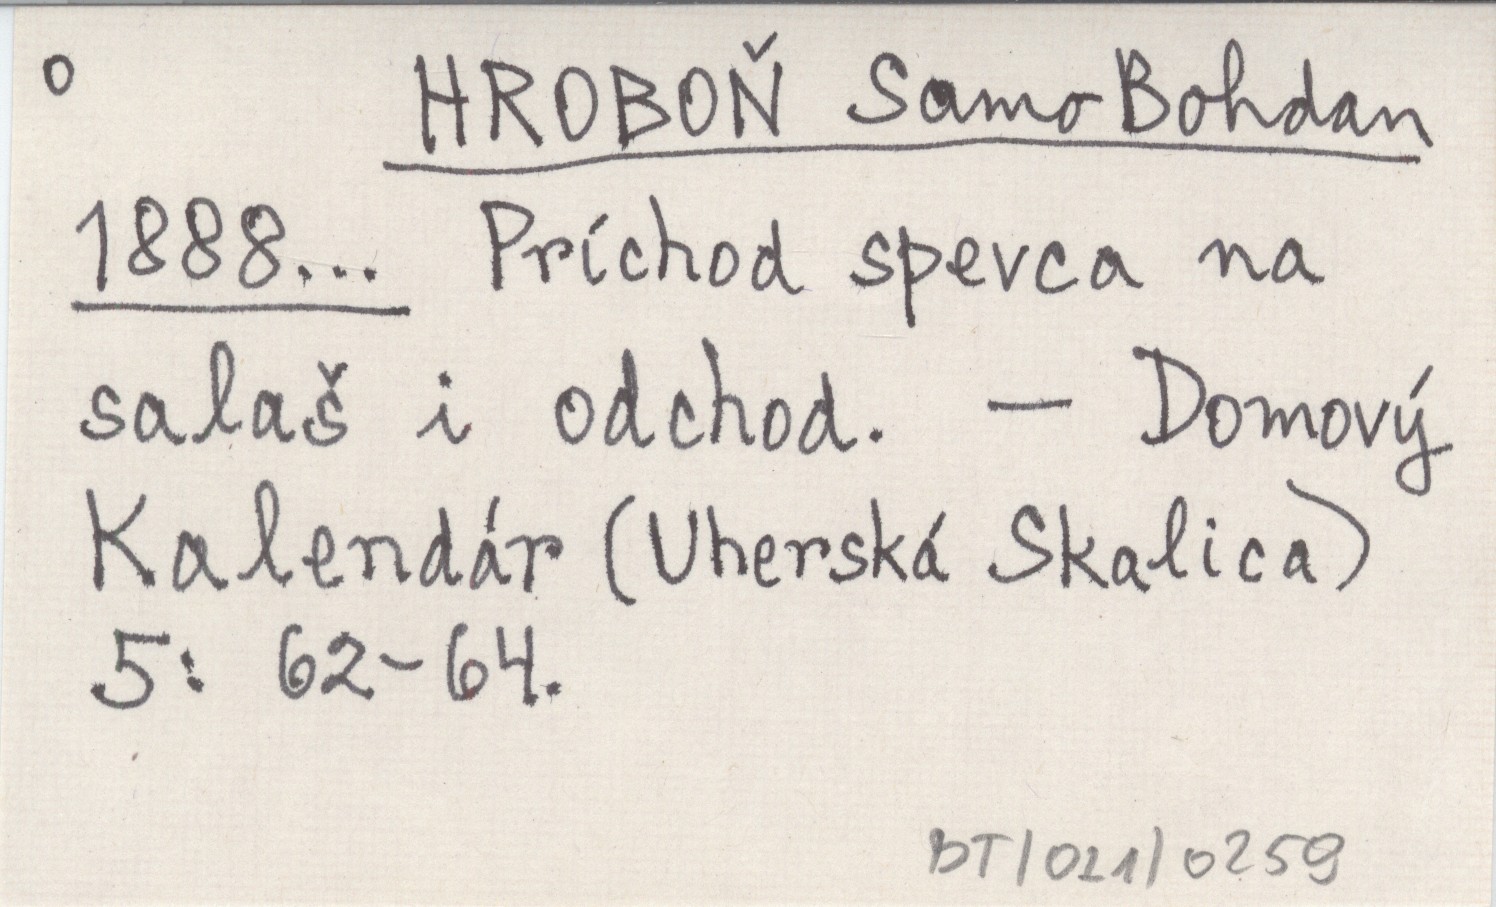 o HROBOŇ Samo Bohdan
1888... Príchod spevca na
salaš i odchod. — Domový
Kalendár (Uherská Skalica)
5: 62-64.
BT/021/0259